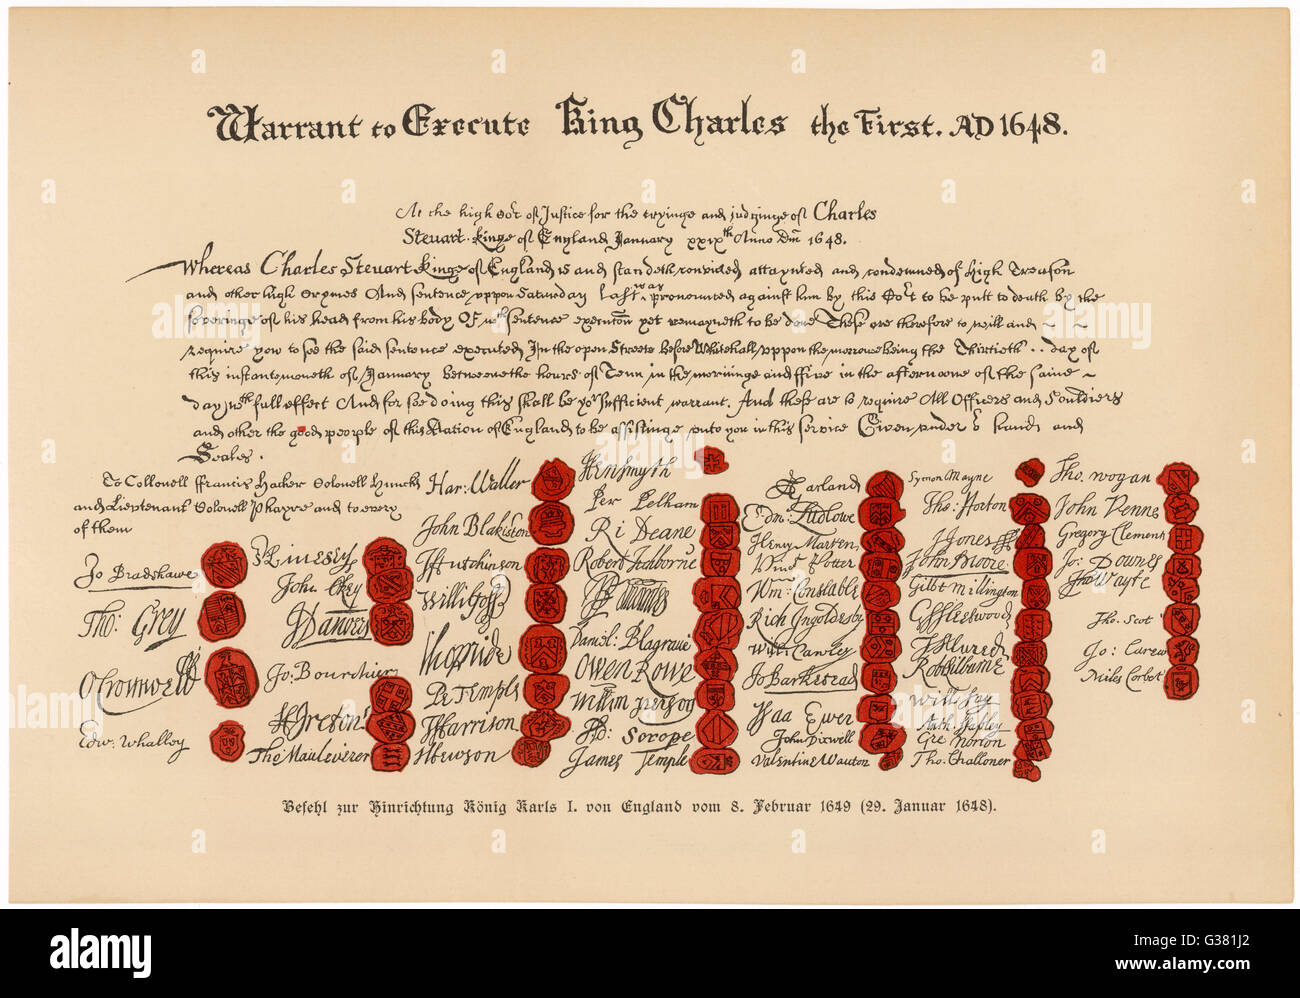 Warrant to Execute King Charles the First. AD 1648.
At the high Cort of Justice for the tryinge and judginge of Charles
Steuart Kinge of England January xxixth Anno Dm 1648.
Whereas Charles Steuart Kinge of England is and standeth convicted attaynted and condemned of High Treason
and other high Crymes And sentence uppon Saturday last was pronounced against him by this Cort to be putt to death by the
severinge of his head from his body Of wch sentence execucon yet remayneth to be done These are therefore to will and
require you to see the said sentence executed In the open Streete before Whitehall uppon the morrowe being the Thirtieth day of
this instante moneth of January betweene the hours of Tenn in the morninge and ffive in the afternoone of the same
day wth full effect And for soe doing this shall be yor sufficient warrant. And these are to require All Officers and Souldiers
and other the good people of this Nation of England to be assistinge unto you in this service Given under o hands and
Seales.
To Collonell ffrancis Hacker Colonell Huncks
and Lieutenant Colonell Phayre and to every
of them
Jo Bradshawe
Tho: Grey
O Cromwell
Edw: Whalley
John Okey
J Danvers
Jo: Bourchier
H Ireton
Tho Mauleverer
Har: Waller
John Blakiston
J Hutchinson
Willi Goff
Tho Pride
Pe Temple
T Harrison
J Hewson
Hen Smyth
Per Pelham
Ri Deane
Robert Tichborne
Daniel Blagrave
Owen Rowe
William Purfoy
James Temple
A Garland
Edm: Ludlowe
Henry Marten
Vint Potter
Wm: Constable
Rich Ingoldesby
Will Cawley
Jo Barkestead
Isaa Ewer
John Dixwell
Valentine Wauton
Symon Mayne
Tho: Horton
J Jones
John Moore
Gilbt Millington
G Fleetwood
J Alured
Rob Lilburne
Will Say
Anth Stapley
Gre Norton
Tho: Challoner
Tho: Wogan
John Venne
Gregory Clement
Jo: Downes
Tho Wayte
Tho: Scot
Jo: Carew
Miles Corbet
Befehl zur Hinrichtung König Karls I. von England vom 8. Februar 1649 (29. Januar 1648).
alamy
Image ID: G381J2
www.alamy.com